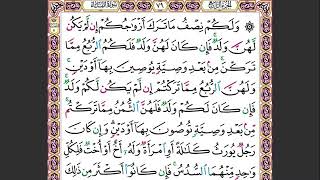 وَلَكُمْ نِصْفُ مَا تَرَكَ أَزْوَاجُكُمْ إِن لَّمْ يَكُن
لَّهُنَّ وَلَدٌ فَإِن كَانَ لَهُنَّ وَلَدٌ فَلَكُمُ الرُّبُعُ مِمَّا
تَرَكْنَ مِنۢ بَعْدِ وَصِيَّةٍ يُوصِينَ بِهَا أَوْ دَيْنٍ
وَلَهُنَّ الرُّبُعُ مِمَّا تَرَكْتُمْ إِن لَّمْ يَكُن لَّكُمْ وَلَدٌ
فَإِن كَانَ لَكُمْ وَلَدٌ فَلَهُنَّ الثُّمُنُ مِمَّا تَرَكْتُم
مِّنۢ بَعْدِ وَصِيَّةٍ تُوصُونَ بِهَا أَوْ دَيْنٍ وَإِن كَانَ
رَجُلٌ يُورَثُ كَلَالَةً أَوِ امْرَأَةٌ وَلَهُ أَخٌ أَوْ أُخْتٌ فَلِكُلِّ
وَاحِدٍ مِّنْهُمَا السُّدُسُ فَإِن كَانُوا أَكْثَرَ مِن ذَلِكَ